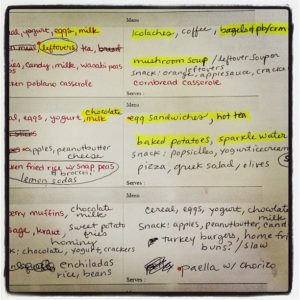 Menu
yogurt, eggs, milk
kolaches, coffee, bagels w/ pb/crm
leftovers, tea,
mushroom soup / leftover soup or
leftovers
candy, milk, wasabi peas
snack: orange, applesauce, cracke
ken poblano casserole
cornbread casserole
Serves:
Menu
eggs, yogurt, chocolate milk
egg sandwiches, hot tea
baked potatoes, sparkle water
apples, peanutbutter
cheese
snack: popsicles, yogurt icecream
ken fried rice w/ snap peas
& broccoli
pizza, greek salad / olives
lemon sodas
Serves:
Menu
erry muffins, chocolate
milk
cereal, eggs, yogurt, chocolate
milk
sage, kraut, sweet potato
fries
snack: apples, peanutbutter, cand
hominy
turkey burgers, home fri
k: chocolate, yogurt, crackers
buns? / slaw
enchiladas
paella w/ chorizo
rice, beans
Serves: